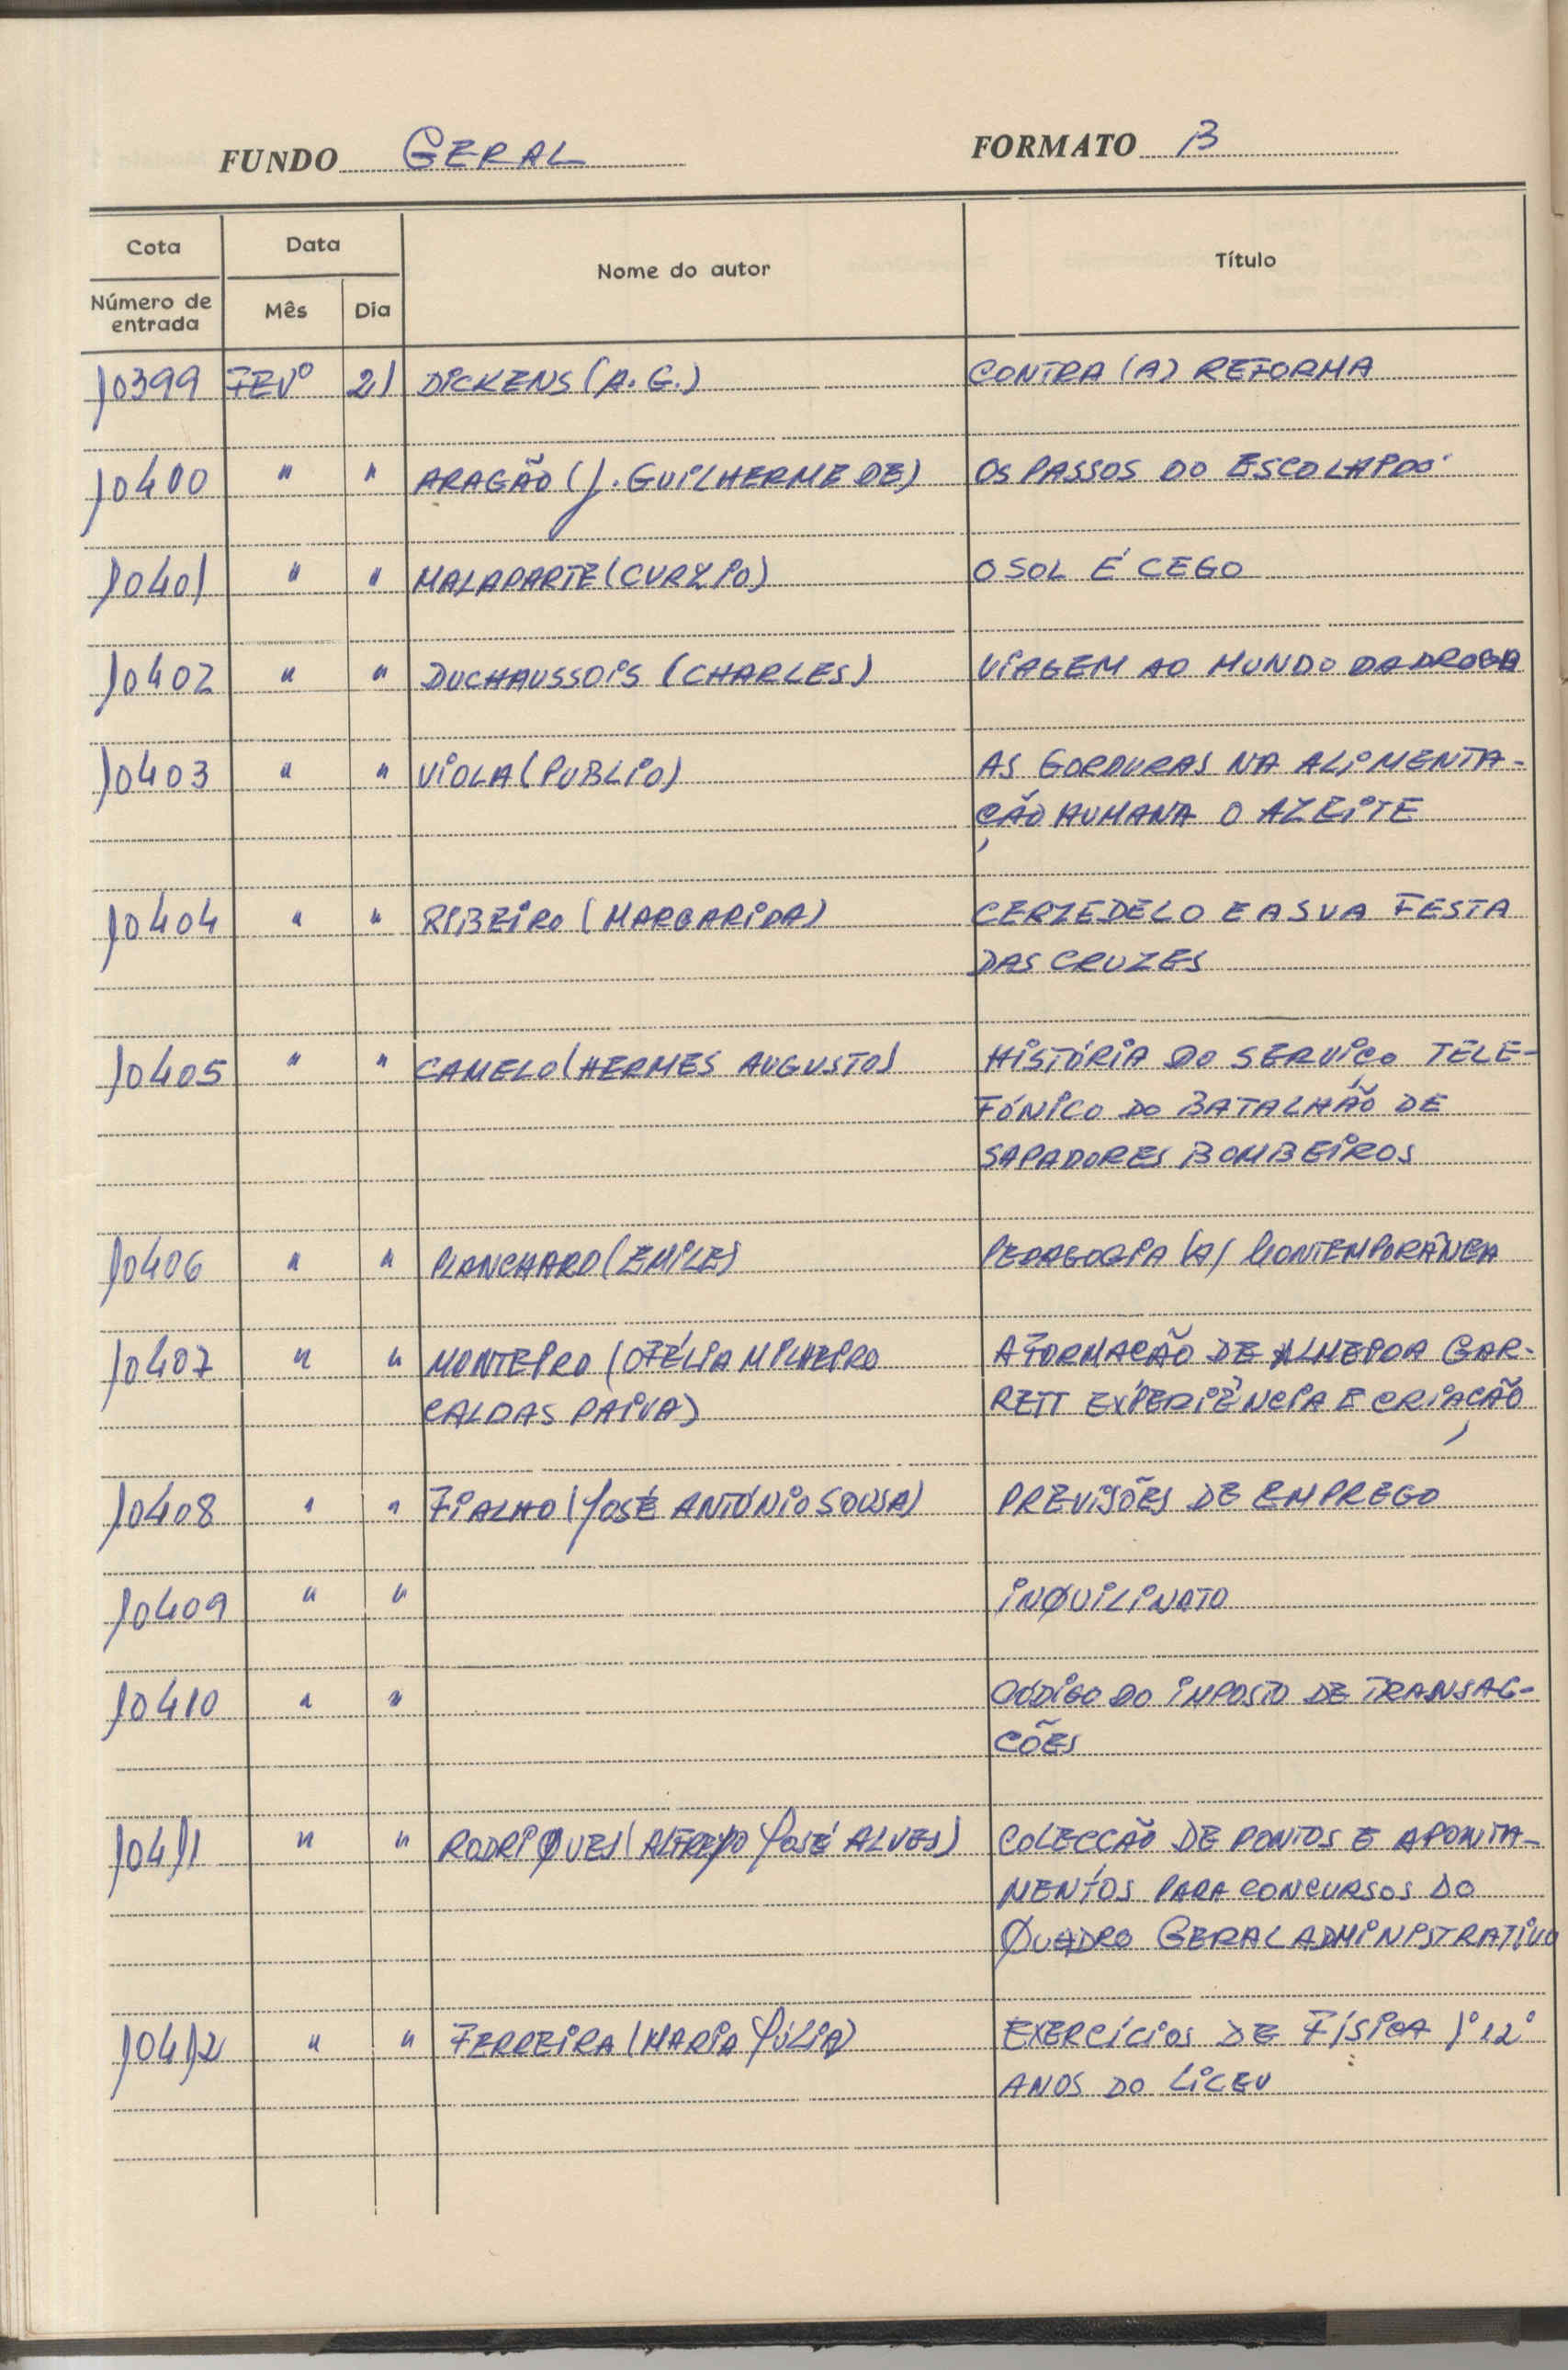 FUNDO GERAL FORMATO B
Cota Data Nome do autor Título
Número de entrada Mês Dia
10399 FEVº 21 DICKENS (A. G.) CONTRA (A) REFORMA
10400 " " ARAGÃO (J. GUILHERME DE) OS PASSOS DO
10401 " " MALAPARTE (CURZIO) O SOL É CEGO
10402 " " DUCHAUSSOIS (CHARLES) VIAGEM AO MUNDO DA DROGA
10403 " " VIOLA (PUBLIO) AS GORDURAS NA ALIMENTA-
ÇÃO HUMANA O AZEITE
10404 " " RIBEIRO (MARGARIDA) CERZEDELO E A SUA FESTA
DAS CRUZES
10405 " " CAMELO (HERMES AUGUSTO) HISTÓRIA DO SERVIÇO TELE-
FÓNICO DO BATALHÃO DE
SAPADORES BOMBEIROS
10406 " " PLANCHARD (EMILE) PEDAGOGIA (A) CONTEMPORÂNEA
10407 " " MONTEIRO (OFÉLIA MILHEIRO A FORMACÃO DE ALMEIDA GAR-
CALDAS PAIVA) RETT EXPERIÊNCIA E CRIAÇÃO
10408 " " FIALHO (JOSÉ ANTÓNIO SOUSA) PREVISÕES DE EMPREGO
10409 " " INQUILINATO
10410 " " CÓDIGO DO IMPOSTO DE TRANSAC-
CÕES
10411 " " RODRIGUES (ALFREDO JOSÉ ALVES) COLECCÃO DE PONTOS E APONTA-
MENTOS PARA CONCURSOS DO
QUADRO GERAL ADMINISTRATIVO
10412 " " FERREIRA (MARIA JÚLIA) EXERCÍCIOS DE FÍSICA 1º 12º
ANOS DO LICEU